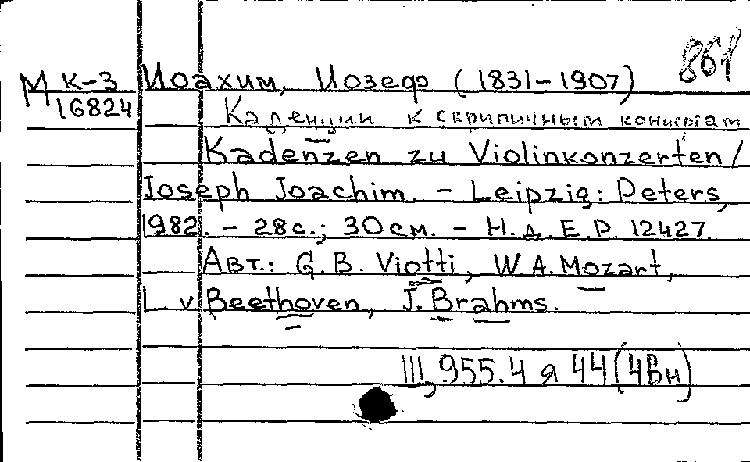 861
М К-3 Иоахим, Иозеф (1831-1907)
16824 Каденции к скрипичным концертам
Kadenzen zu Violinkonzerten /
Joseph Joachim. - Leipzig: Peters,
1982. - 28 с.; 30 см. - Н. д. E. P. 12427.
Авт.: G. B. Viotti, W. A. Mozart,
L. v. Beethoven, J. Brahms.
III, 955.4 я 44 (4Вн)